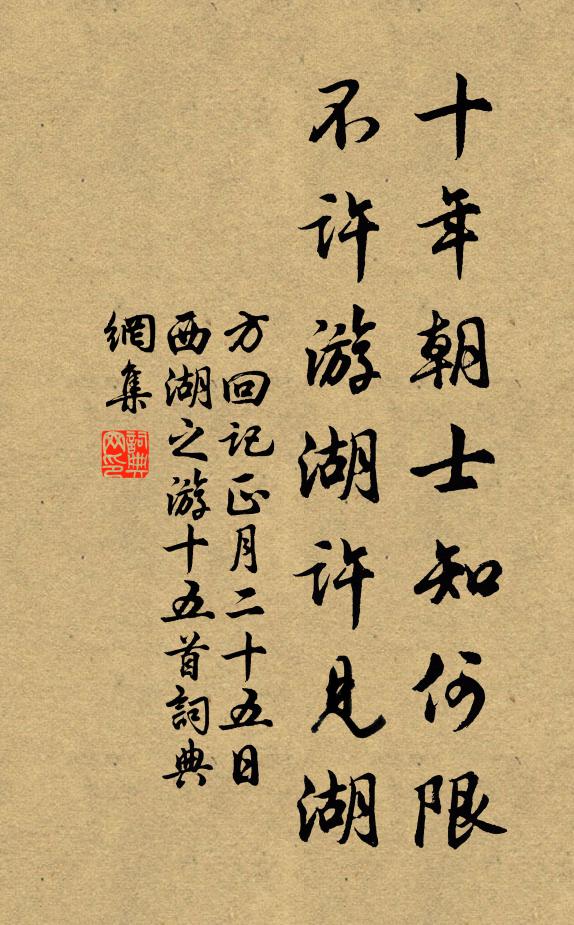 十年朝士知何限
不許游湖許見湖
方回記正月二十五日
西湖之游十五首詞典
網集
詞典
网印